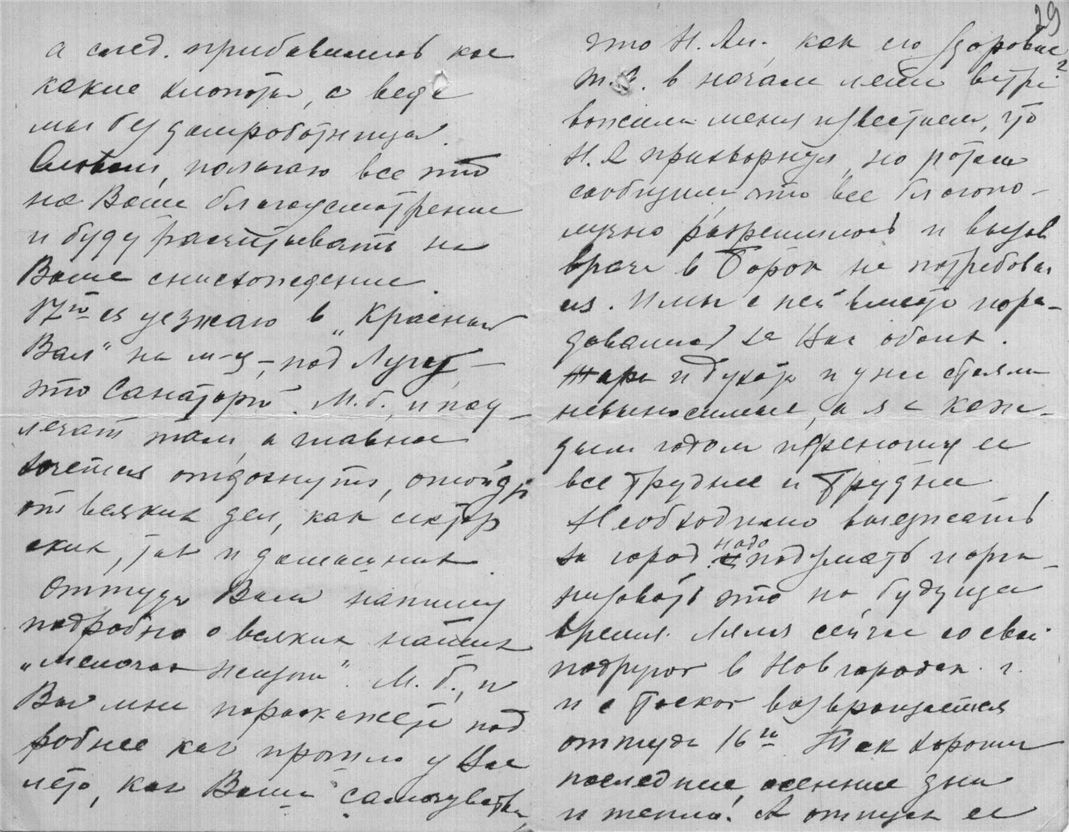 а след. прибавилось кое
какие хлопоты, а ведь
мы без домработницы.
Словом, полагаю все это
на Ваше благоусмотрение
и буду расчитывать на
Ваше снисхождение.
17го я уезжаю в "Красный
Вал" на м-ц, под Лугу –
это Санаторий. М.б., и под-
лечат там, а главное
хочется отдохнуть, отойди
от всяких дел, как
так и домашних.
Оттуда Вам напишу
подробно о всяких наших
"мелочах жизни". М.б., и
Вы мне порасскажете под
робнее как прошло у Вас
лето, как Ваше самочувствие,
29
что Н. Ал. как его здоровье?
в начале лета встре
вожили меня известием, что
Н.А прихворнул, но потом
сообщили что все благопо-
лучно разрешилось и вызов
врача в Борок не потребовал
ся. И мы с ней вместе пора-
довались за Вас обоих.
и духота и у нас стояли
невыносимые, а я с каж-
дым годом переношу ее
все труднее и труднее
Необходимо выезжать
за город. надо подумать и орга-
низовать это на будущее
время. Ляля сейчас со своей
подругой в Новгородск. г.
и с тоской возвращается
оттуда 16го. Так хороши
последние, осенние дни
и тепло! А отпуск ее